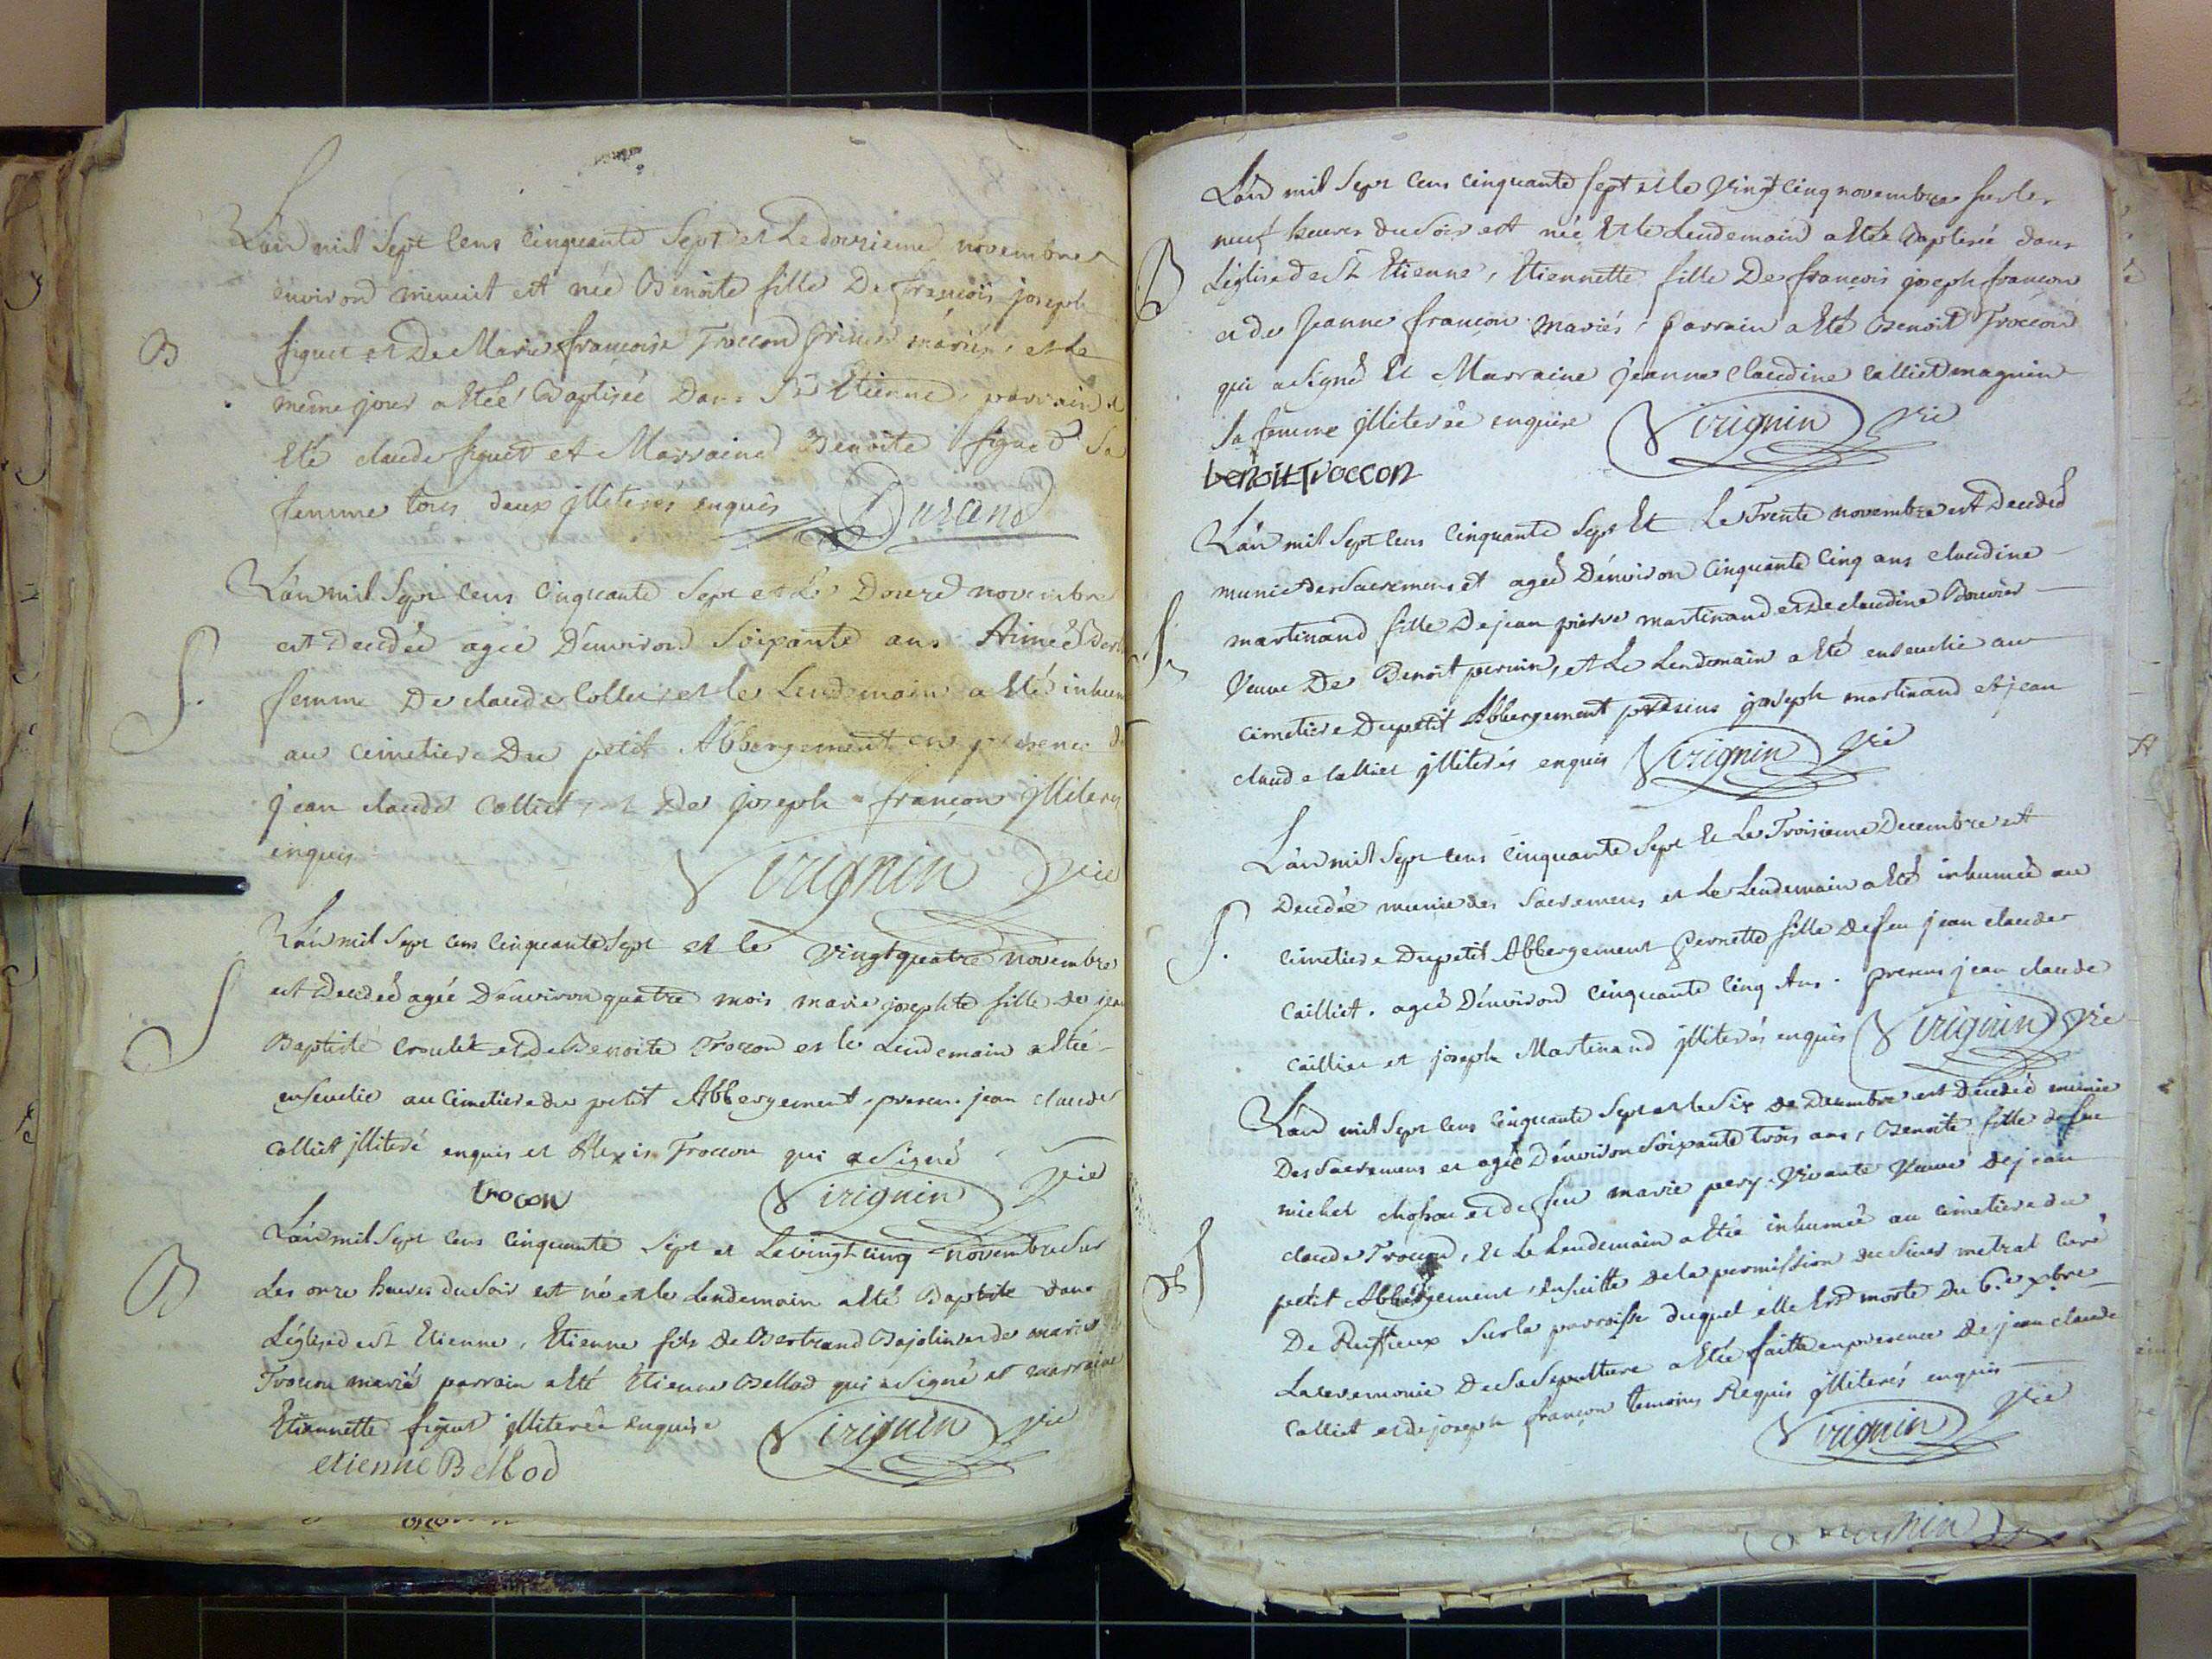 L'an mil Sept Cens Cinquante Sept et Le douzieme novembre
environ minuit est née Benoite fille De françois joseph
figuet et De Marie françoise Troccon mariés, et Le
même jour a Eté Baptisée Dans St Etienne, parrain a
Eté claude figuet et Marraine Benoite figuet Sa
femme tous deux jlliteres enquis Durand
B
L'an mil Sept Cens Cinquante Sept et Le Douze novembre
est Decedée agée D'environ Soixante ans Aimée
femme De claude Collet, et le Lendemain a Eté inhumée
au cimetiere Du petit Abbergement en presence de
jean claude Colliet, et De joseph françon jlliterés
enquis Virignin Vic
S.
L'an mil Sept cens Cinquante Sept et le vingt quatre novembre
est Decedée agée D'environ quatre mois marie josephte fille de jean
Baptiste Croulet et De Benoite Troccon et le Lendemain a Eté
ensevelie au Cimetiere du petit Abbergement, presens jean claude
Colliet jlliteré enquis et Alexis Troccon qui a Signé
trocon Virignin Vic
S
L'an mil Sept Cens Cinquante Sept et Le vingt cinq novembre Sur
Les onze heures du Soir est né et le Lendemain a Eté Baptisé dans
L'église de St Etienne, Etienne fils de Bertrand Bajolin et de marie
Troccon mariés parrain a Eté Etienne Bellod qui a Signé et marraine
Etiennette figuet jlliterée enquise Virignin Vic
etienne Bellod
B
L'an mil Sept Cens Cinquante Sept et le Vingt Cinq novembre sur les
neuf heures du Soir est née Et le Lendemain a Eté Baptisée dans
L'église de St Etienne, Etiennette fille De françois joseph françon
et de Jeanne françon mariés, Parrain a Eté Benoit Troccon
qui a Signé Et Marraine jeanne claudine Calliet magnin
Sa femme jlliterée enquise Virignin Vic
benoit Troccon
B
L'an mil Sept Cens Cinquante Sept Et Le Trente novembre est Decedée
munie des Sacremens et agée D'environ Cinquante Cinq ans claudine
martinand fille De jean pierre martinand et De claudine Bouvier
Veuve De Benoit pernin, et Le Lendemain a Eté ensevelie au
cimetiere Du petit Abbergement presens joseph martinand et jean
claude Calliet jlliterés enquis Virignin Vic
S.
L'an mil Sept Cens Cinquante Sept Et Le Troisieme Decembre est
Decedée munie des Sacremens et Le Lendemain a Eté inhumée au
Cimetiere Du petit Abbergement Pernette fille de feu jean claude
Cailliet, agée D'environ Cinquante Cinq Ans. presens jean claude
Caillier et joseph Martinand jlliterés enquis Virignin Vic
S.
L'an mil Sept Cens Cinquante Sept et le Six de Decembre est Decedée munie
Des Sacremens et agée D'environ Soixante trois ans, Benoite fille de feu
michel et de feu marie pery. Vivante Veuve de jean
claude Troccon, Et Le Lendemain a Eté inhumée au cimetiere du
petit Abbergement, Ensuitte de la permission du Sieur metral Curé
De Ruffieux Sur la parroisse duquel elle Est morte du 6.e xbre
La ceremonie De Sa Sepulture a Eté faitte en presence De jean claude
Calliet et de joseph françon temoins Requis jlliterés enquis
Virignin Vic
S